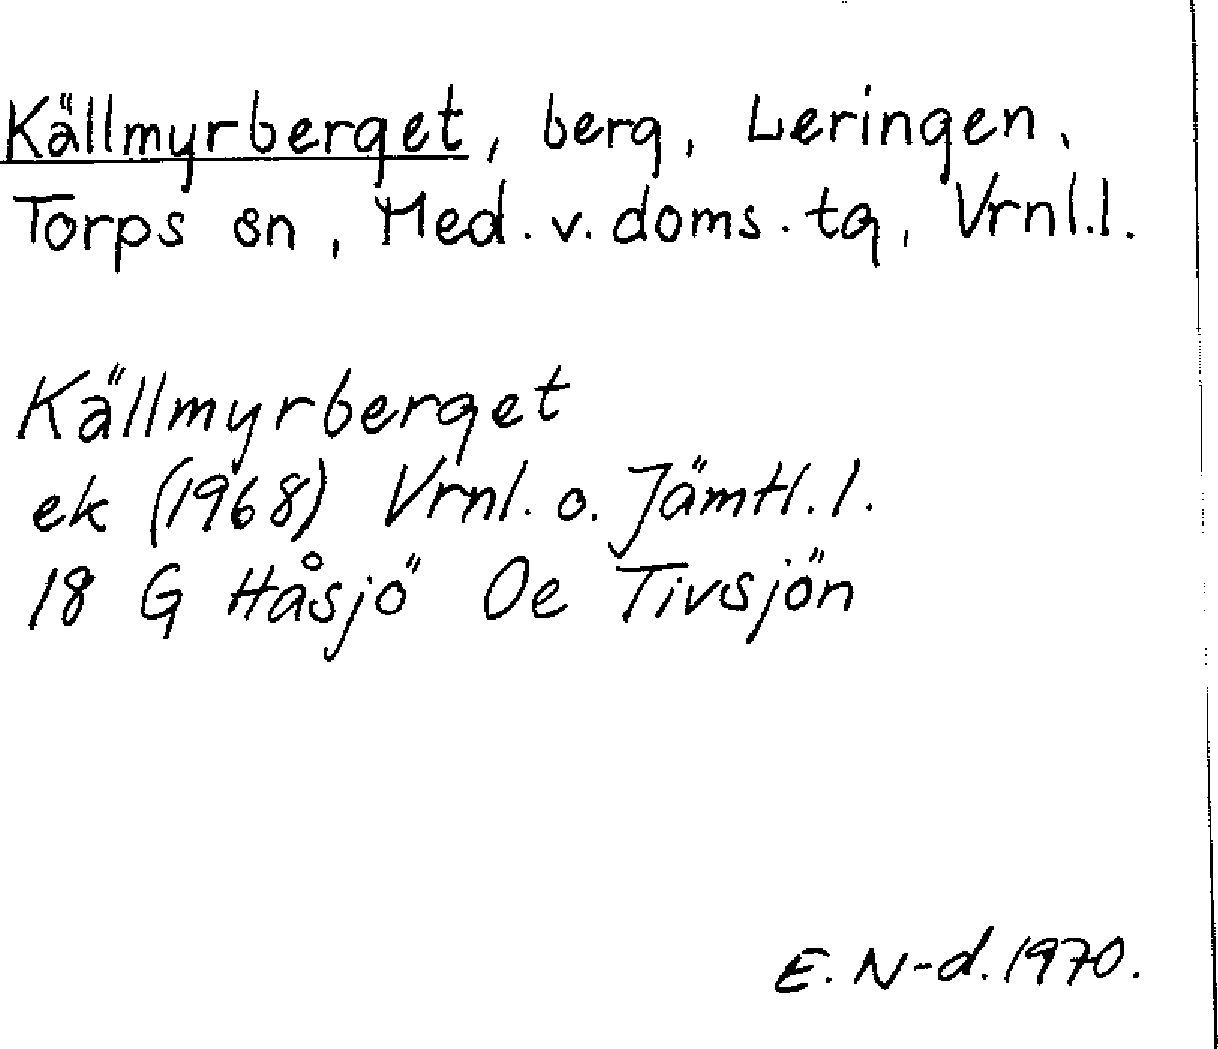 Källmyrberget, berg, Leringen,
Torps sn, Med. v. doms. tg, Vrnl.l.
Källmyrberget
ek (1968) Vrnl. o. Jämtl. l.
18 G Håsjö Oe Tivsjön
E. N-d. 1970.